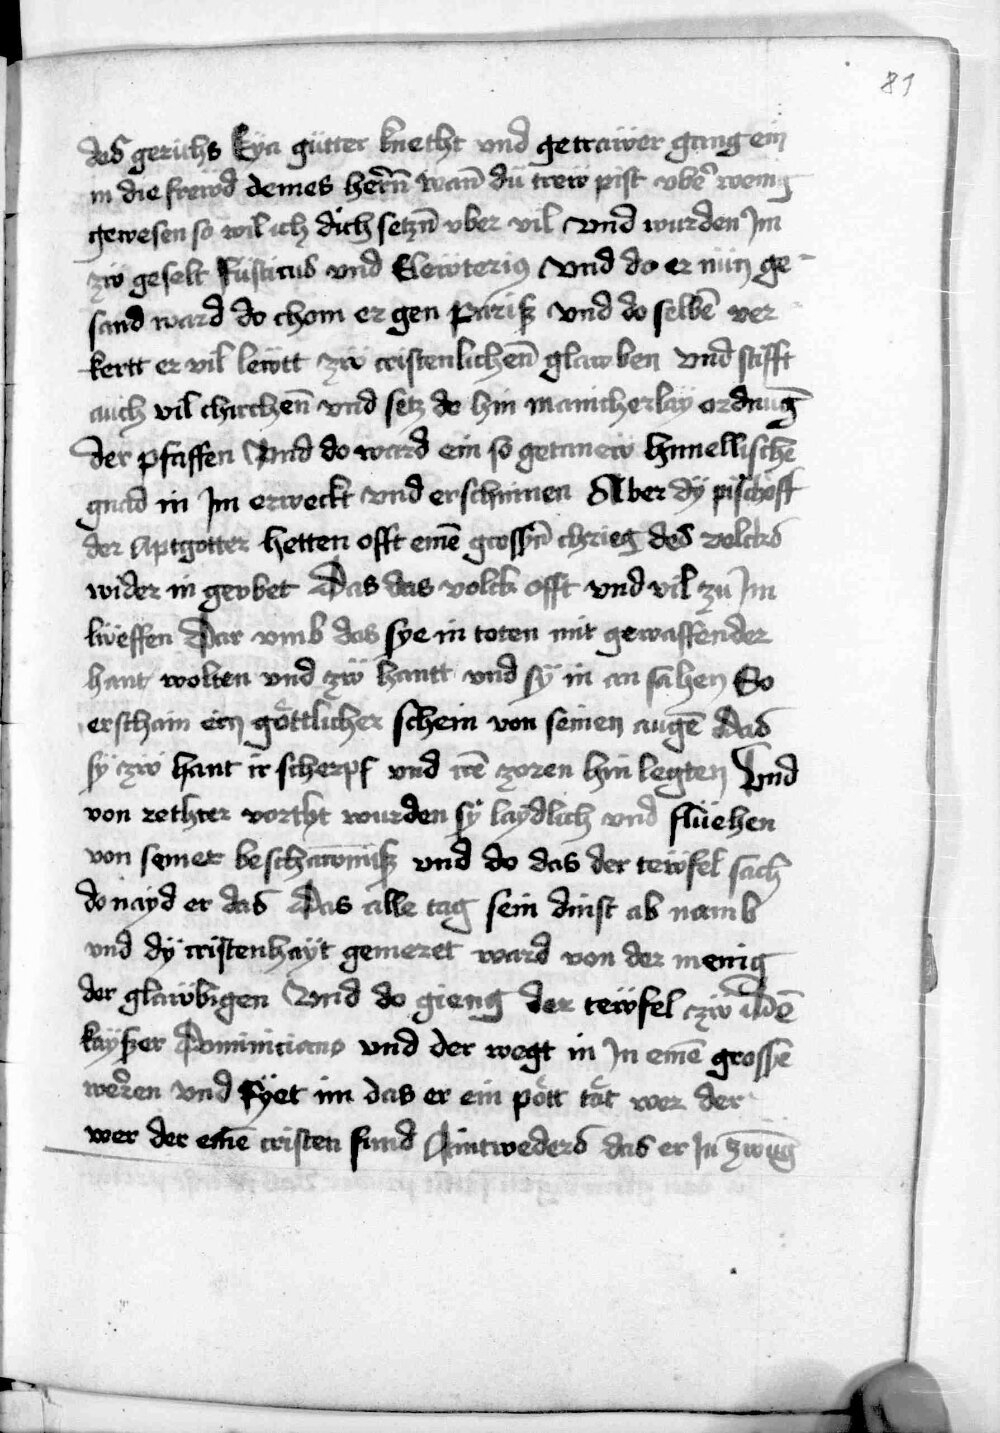 81
des gerichs Eya gůtter knetht vnd getrawer gang ein
in die frewd deines herrn wan̄ dű trew pist vbe᷑ wenig
gewesen so wil ich dich setzn̄ vber vil Vnd wurden Im
zẅ geselt Rusticus vnd Elewterius Vnd do er nün ge-
sand ward do chom er gen Pariß Vnd do selbē ver
kertt er vil lewtt zẅ cristenlichen̄ glawben Vnd stifft
auch vil chirchen̄ vnd setz do hin manicherlay ordnūg
der pfaffen Vnd do ward ein so getanew himellische
gnad in Im erweckt vnd erschinen Aber dÿ pischoff
der Aptgotter hetten offt einē grossn̄ chrieg des volcks
wider in geubet Das das volck offt vnd vil zu Im
lüeffen Dar vmb das sye in toten mit gewaffender
hant wolten vnd zẅ hantt vnd sÿ in an sahen So
erschain ein göttlicher schein von seinen augē Das
sÿ zẅ hant ir scherpf vnd irē zoren hin legten Vnd
von rethter vortht wurden sÿ laydlich vnd flüehen
von seiner beschawniß vnd do das der tewfel sach
do nayd er das Das alle tag sein dinst ab namb
vnd dÿ cristenhayt gemeret ward von der menig
der glawbigen Vnd do gieng der tewfel zẅ dē
kayßer Dominiciano vnd der wegt in In einē grossē
zoren vnd Ryet im das er ein pött tät wer der
wer der einē cristen fund Aintweders das er In zwūg